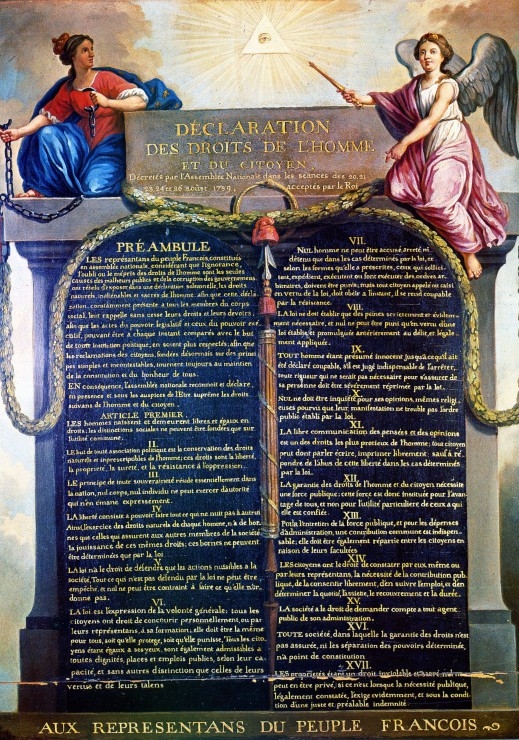 DÉCLARATION
DES DROITS DE L'HOMME
ET DU CITOYEN,
Décretés par l'Assemblée Nationale dans les séances des 20, 21
23, 24 et 26 août 1789, acceptés par le Roi
PRÉAMBULE
LES représentans du peuple Francois, constitués
en assemblée nationale, considérant que l'ignorance,
l'oubli ou le mépris des droits de l'homme sont les seules
causes des malheurs publics et de la corruption des gouvernemens,
ont résolu d'exposer dans une déclaration solemnelle, les droits
naturels, inaliénables et sacrés de l'homme; afin que cette décla-
ration, constamment présente à tous les membres du corps
social, leur rappelle sans cesse leurs droits et leurs devoirs;
afin que les actes du pouvoir législatif et ceux du pouvoir exé-
cutif, pouvant être à chaque instant comparés avec le but
de toute institution politique, en soient plus respectés; afin que
les reclamations des citoyens, fondées désormais sur des prin-
cipes simples et incontestables, tournent toujours au maintien
de la constitution et du bonheur de tous.
EN conséquence, l'assemblée nationale reconnoit et déclare
en presence et sous les auspices de l'Etre suprême les droits
suivans de l'homme et du citoyen.
ARTICLE PREMIER.
LES hommes naissent et demeurent libres et égaux en
droits; les distinctions sociales ne peuvent être fondées que sur
l'utilité commune.
II.
LE but de toute association politique est la conservation des droits
naturels et imprescriptibles de l'homme; ces droits sont la liberté,
la proprieté, la sureté, et la résistance à l'oppression.
III.
LE principe de toute souveraineté réside essentiellement dans
la nation, nul corps, nul individu ne peut exercer d'autorité
qui n'en émane expressement.
IV.
LA liberté consiste à pouvoir faire tout ce qui ne nuit pas à autrui
Ainsi, l'exercice des droits naturels de chaque homme, n'a de bor-
nes que celles qui assurent aux autres membres de la société
la jouissance de ces mêmes droits; ces bornes ne peuvent
être déterminées que par la loi.
V.
LA loi n'a le droit de défendre que les actions nuisibles à la
société. Tout ce qui n'est pas défendu par la loi ne peut être
empêché, et nul ne peut être contraint à faire ce qu'elle n'or-
donne pas.
VI.
LA loi est l'expression de la volonté générale; tous les
citoyens ont droit de concourir personnellement, ou par
leurs représentans, à sa formation; elle doit être la même
pour tous, soit qu'elle protege, soit qu'elle punisse. Tous les cito-
yens étant égaux à ses yeux, sont également admissibles à
toutes dignités, places et emplois publics, selon leur ca-
pacité, et sans autres distinction que celles de leurs
vertus et de leurs talens
VII.
NUL homme ne peut être accusé, arreté, ni
détenu que dans les cas déterminés par la loi, et
selon les formes qu'elle a prescrites, ceux qui sollici-
tent, expédient, exécutent ou font exécuter des ordres ar-
bitraires, doivent être punis; mais tout citoyen appelé ou saisi
en vertu de la loi, doit obéir à l'instant, il se rend coupable
par la résistance.
VIII.
LA loi ne doit établir que des peines strictement et évidem-
ment nécessaire, et nul ne peut être puni qu'en vertu d'une
loi établie, et promulguée antérieurement au délit, et légale-
ment appliquée.
IX.
TOUT homme étant présumé innocent jusqu'à ce qu'il ait
été déclaré coupable, s'il est jugé indispensable de l'arrêter,
toute rigueur qui ne serait pas nécessaire pour s'assurer de
sa personne doit être sévèrement réprimée par la loi.
X.
NUL ne doit être inquiété pour ses opinions, mêmes religi-
euses pourvu que leur manifestation ne trouble pas l'ordre
public établi par la loi.
XI.
LA libre communication des pensées et des opinions
est un des droits les plus précieux de l'homme; tout citoyen
peut donc parler, écrire, imprimer librement; sauf à ré-
pondre de l'abus de cette liberté dans les cas déterminés
par la loi.
XII.
LA garantie des droits de l'homme et du citoyen nécessite
une force publique; cette force est donc instituée pour l'avan-
tage de tous, et non pour l'utilité particulière de ceux à qui
elle est confiée.
XIII.
Pour l'entretien de la force publique, et pour les dépenses
d'administration, une contribution commune est indispen-
sable; elle doit être également répartie entre les citoyens en
raison de leurs facultées
XIV.
LES citoyens ont le droit de constater par eux même ou
par leurs représentans, la nécessité de la contribution pub-
lique, de la consentir librement, d'en suivre l'emploi, et d'en
déterminer la quotité, l'assiette, le recouvrement et la durée.
XV.
LA société a le droit de demander compte à tout agent
public de son administration.
XVI.
TOUTE société, dans laquelle la garantie des droits n'est
pas assurée, ni les séparation des pouvoirs déterminée,
n'a point de constitution
XVII.
LES proprietés étant un droit inviolable et sacré, nul ne
peut en être privé, si ce n'est lorsque la nécessité publique,
légalement constatée, l'exige évidemment, et sous la condi-
tion d'une juste et préalable indemnité.
AUX REPRESENTANS DU PEUPLE FRANCOIS